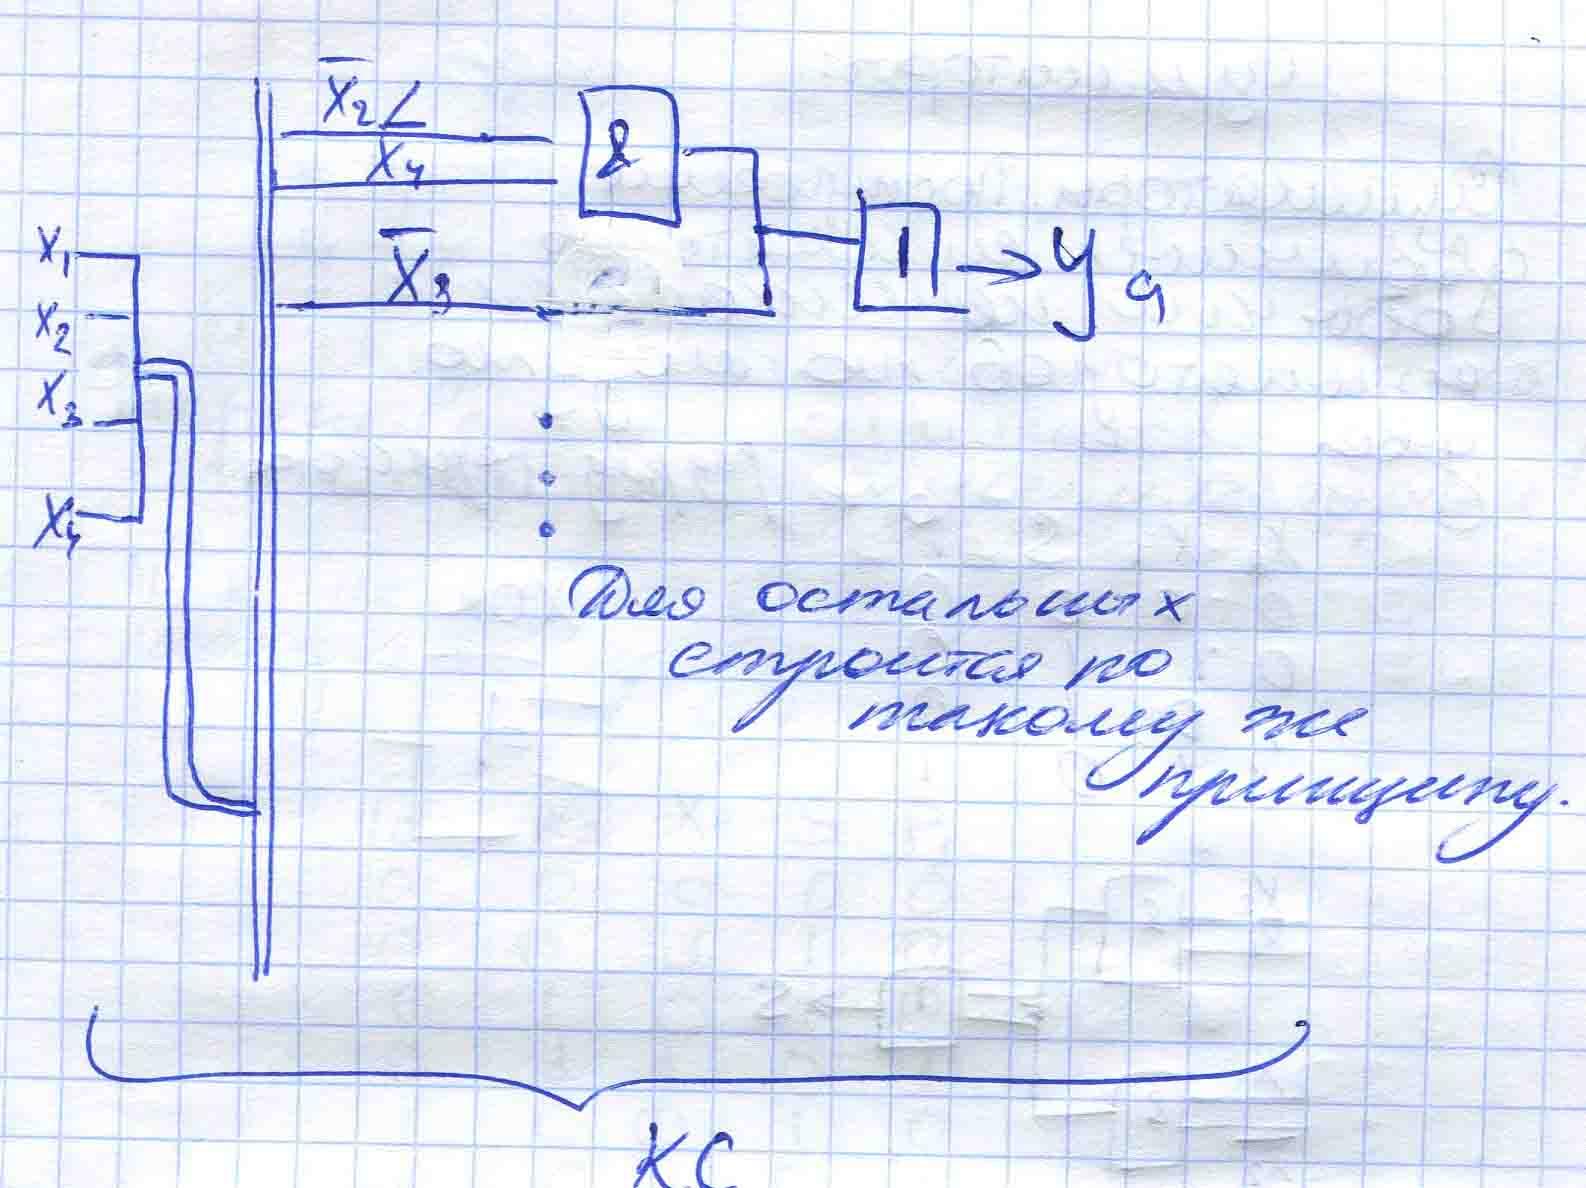 X̅₂
X₄
&
X̅₃
1
y a
X₁
X₂
X₃
X₄
Для остальных
строится по
такому же
принципу.
КС